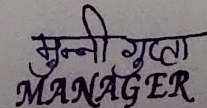 मुन्नी गुप्ता
MANAGER